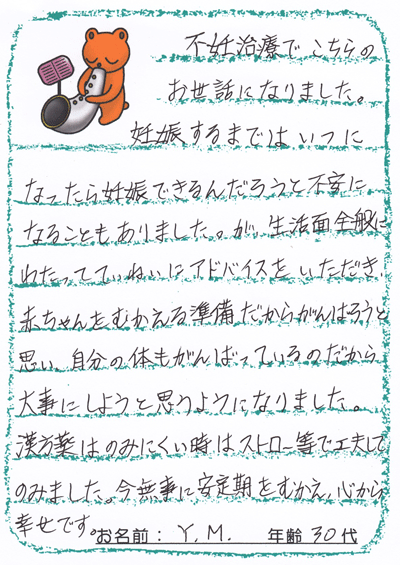 不妊治療でこちらの
お世話になりました。
妊娠するまではいつに
なったら妊娠できるんだろうと不安に
なることもありました。が、生活面全般に
わたってていねいにアドバイスをいただき、
赤ちゃんをむかえる準備だからがんばろうと
思い、自分の体もがんばっているのだから
大事にしようと思うようになりました。
漢方薬はのみにくい時はストロー等で工夫して
のみました。今無事に安定期をむかえ、心から
幸せです。
お名前： Y.M. 年齢 30代